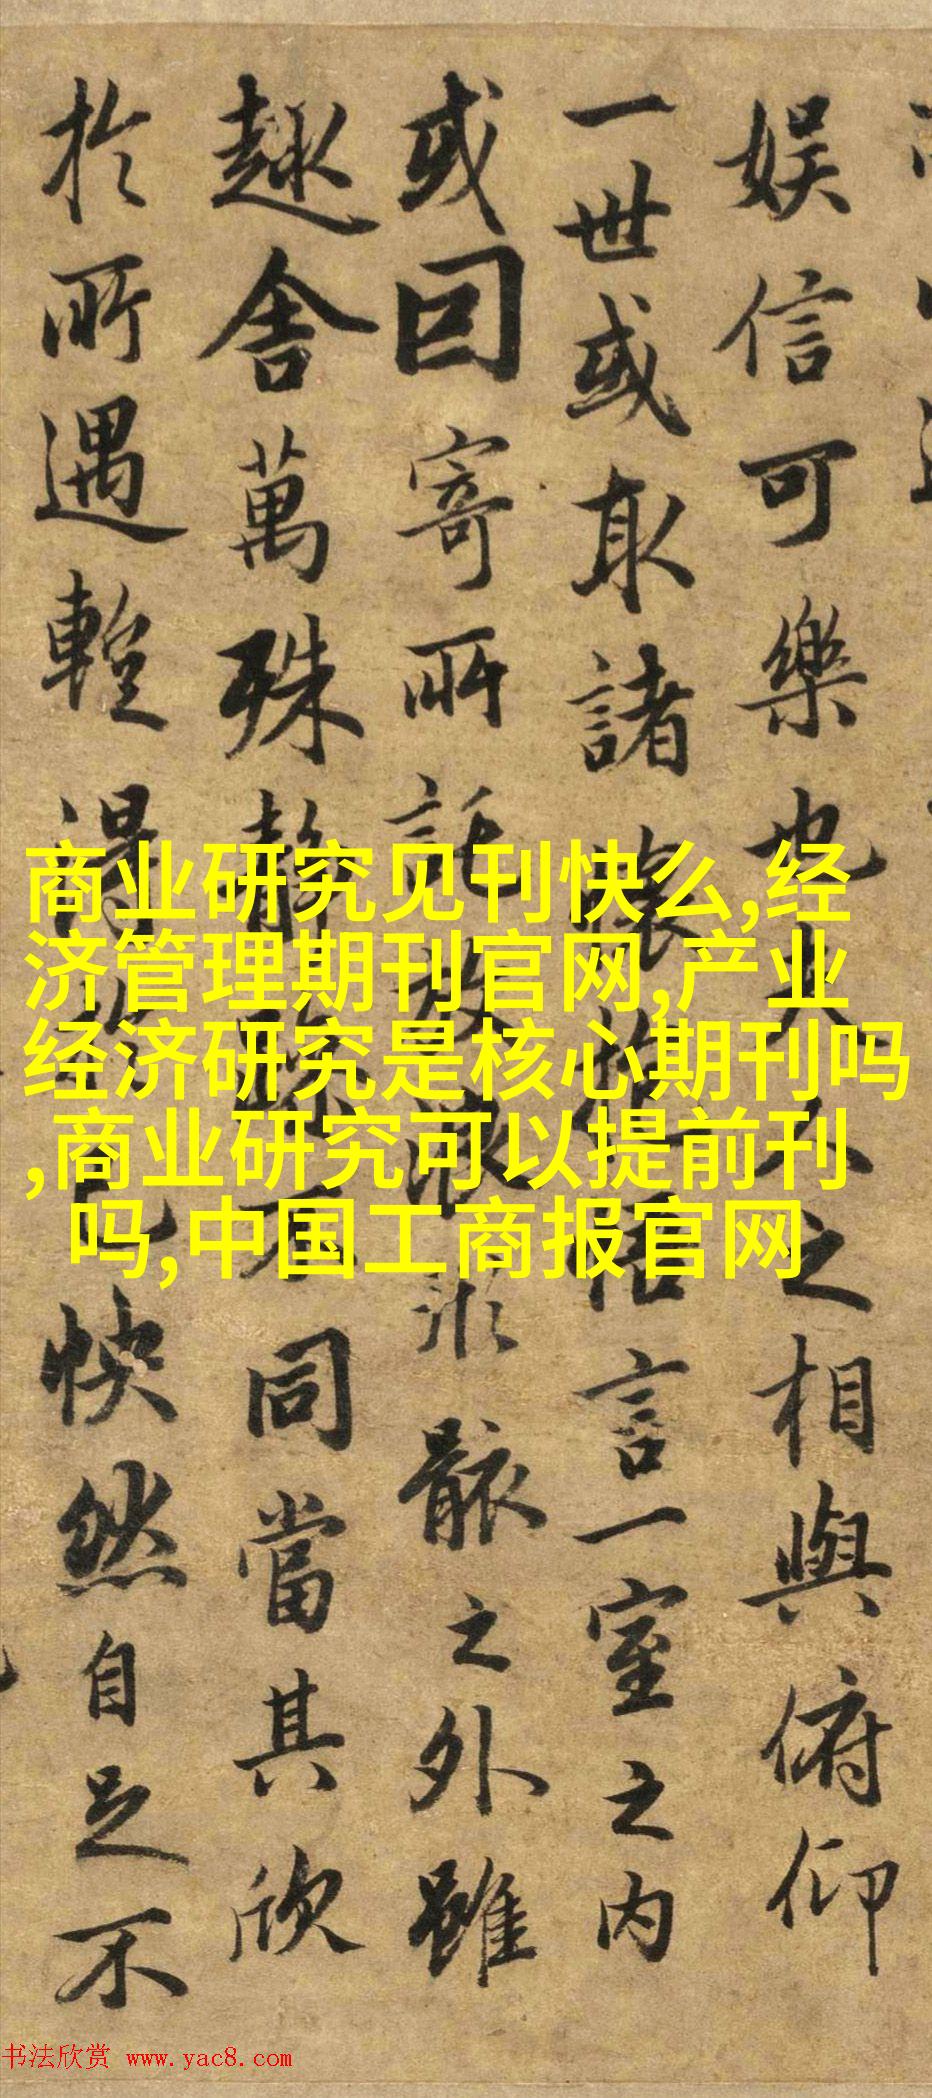 娱信可樂也夫人之相與俯仰
一世或取諸懷抱悟言一室之内
或囙寄所託放浪形骸之外雖
趣舍萬殊静躁不同當其欣
於所遇得於己快然自足不
商业研究见刊快么,经
济管理期刊官网,产业
经济研究是核心期刊吗
,商业研究可以提前刊
吗,中国工商报官网
书法欣赏 www.yac8.com